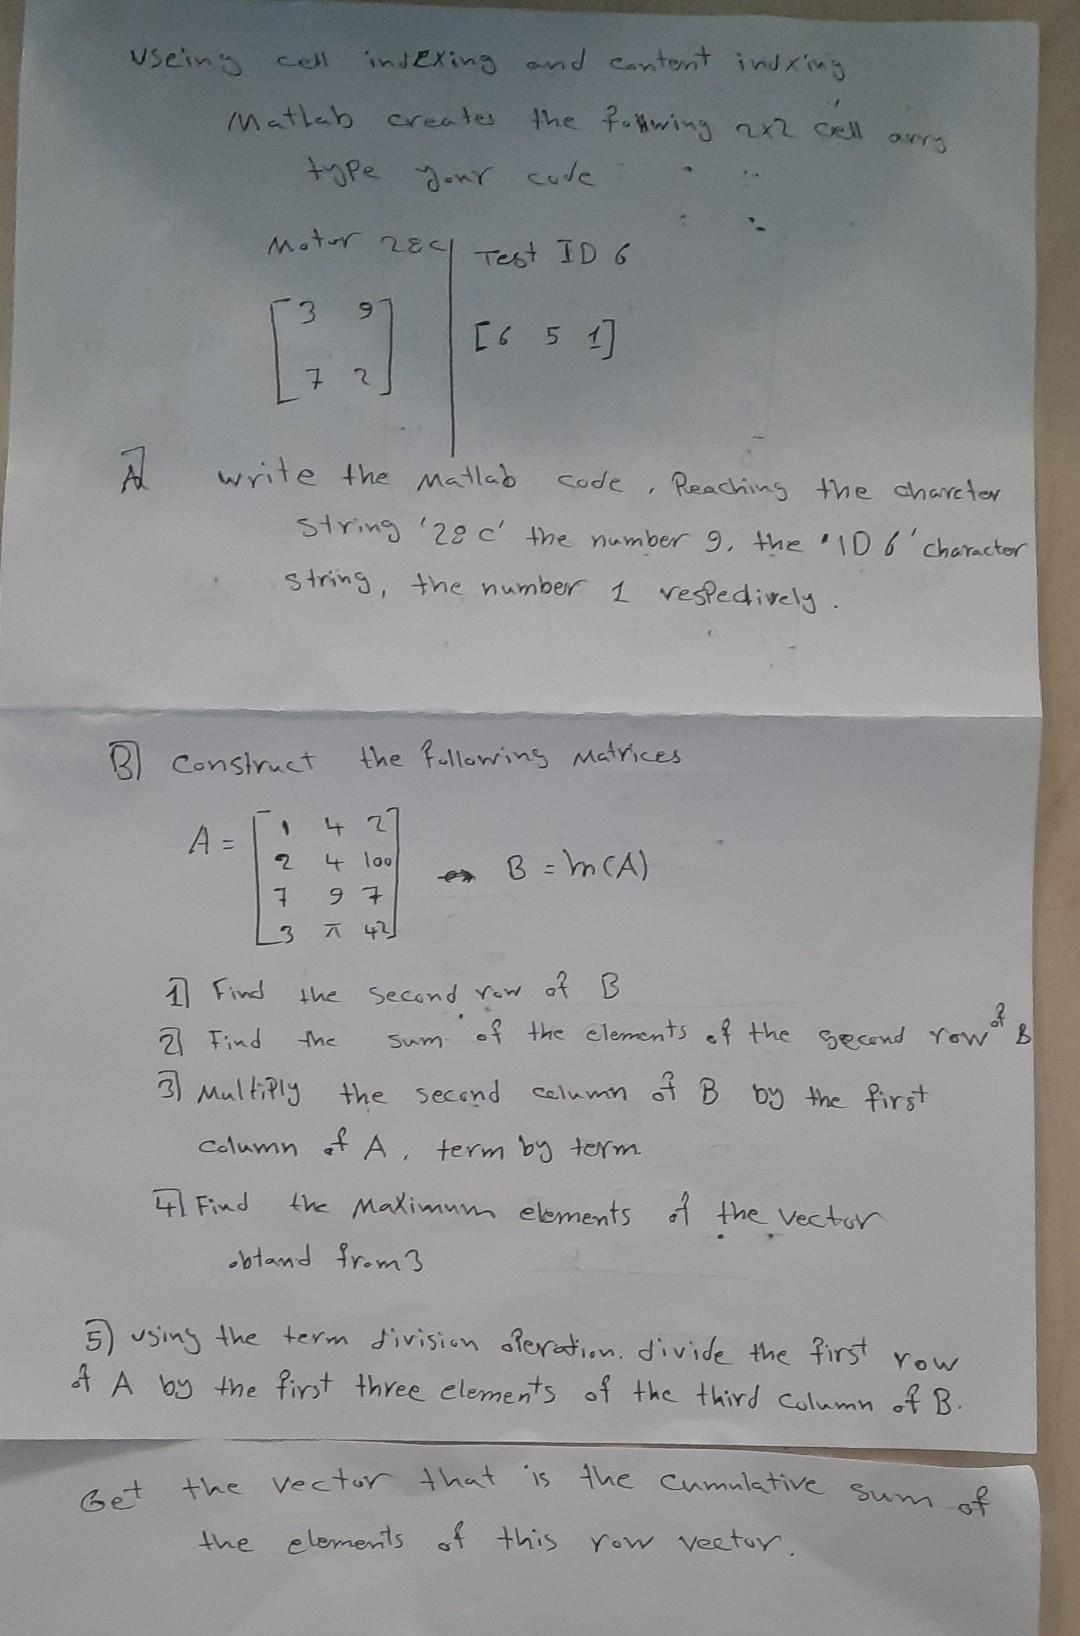 Useing cell indexing and content indxing
Matlab creates the following 2x2 cell arry
type your code
Motor 28C Test ID 6
[3 9
7 2] [6 5 1]
A] write the Matlab code, Reaching the charcter
string '28 C' the number 9, the 'ID 6' character
string, the number 1 respectively.
B] Construct the following Matrices
A = [1 4 2
2 4 100
7 9 7
3 π 42] B = ln(A)
1] Find the second row of B
2] Find the sum of the elements of the second row of B
3] Multiply the second column of B by the first
column of A, term by term
4] Find the Maximum elements of the vector
obtand from 3
5) using the term division operation. divide the first row
of A by the first three elements of the third column of B.
Get the vector that is the cumulative sum of
the elements of this row vector.